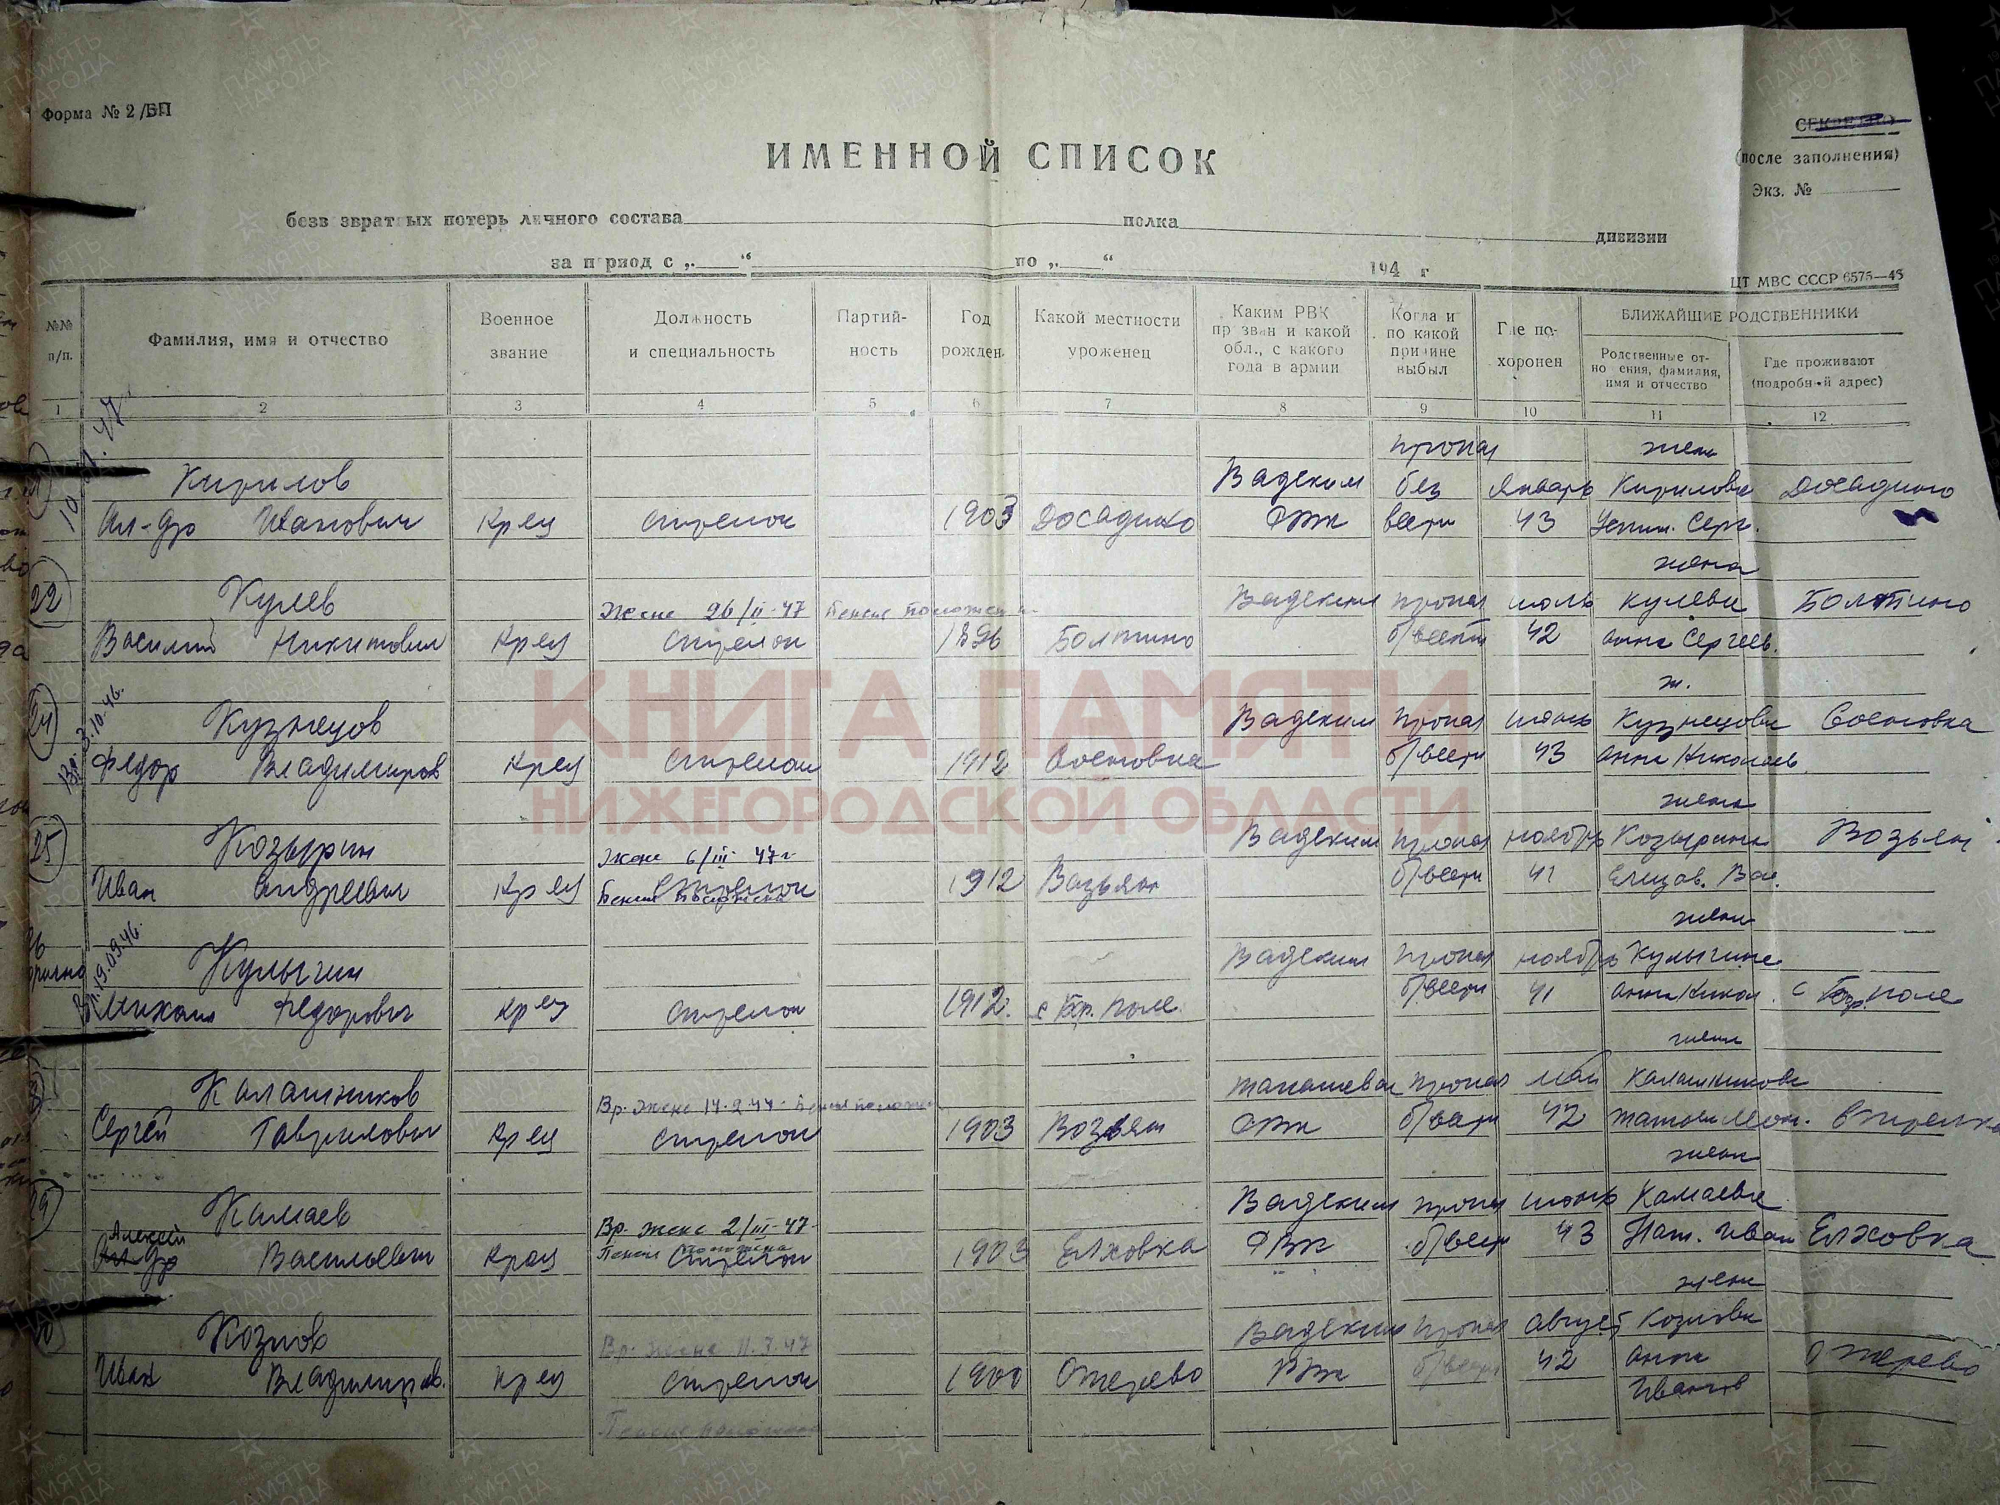 Форма № 2/БП
СЕКРЕТНО
(после заполнения)
Экз. №
ИМЕННОЙ СПИСОК
безв звратных потерь личного состава полка дивизии
за период с „ “ по „ “ 194 г
ЦТ МВС СССР 6575—45
№№ п/п.
Фамилия, имя и отчество
Военное звание
Должность и специальность
Партий- ность
Год рожден.
Какой местности уроженец
Каким РВК пр зван и какой обл., с какого года в армии
Когда и по какой причине выбыл
Где по- хоронен
БЛИЖАЙШИЕ РОДСТВЕННИКИ
Родственные от- но ения, фамилия, имя и отчество
Где проживают (подробный адрес)
1 2 3 4 5 6 7 8 9 10 11 12
пропал жена
Кирилов Вадским без январь Кирилова Досадино
Ал-др Иванович Крец стрелок 1903 Досадино РВК вести 43 Серг.
жена
22 Кулев Жене 26/II-47 Пенсие Вадским пропал июль Кулева Болтино
Василий Никитович Крец стрелок 1896 Болтино б/вести 42 Анна Сергеев.
ж.
24 Кузнецов Вадским пропал июнь Кузнецова Сосновка
3.10.46. Федор Владимиров Крец стрелок 1912 Сосновка б/вести 43 Анна Николаев.
жена
25 Козырин Жене 6/III 47г Вадским пропал ноябрь Козырина Возьян
Иван Андреевич Крец стрелок 1912 Возьян б/вести 41 Елизав. Вас.
жена
Кулыгин Вадским пропал ноябрь Кулыгина
19.09.46. Михаил Федорович Крец стрелок 1912. с Кр. Поле. б/вести 41 Анна Никол. с Кр. поле
жена
Калашников Вр. Жене 14.2.47 пропал май Калашникова
Сергей Гаврилович Крец стрелок 1903 Возьян РВК б/вести 42
жена
Камаев Вр. Жене 2/III-47 Вадским пропал июнь Камаева
Алексей
Ал-др Васильевич Крец стрелок 1903 Елховка РВК б/вести 43 Нат. Иван Елховка
жена
Козлов Вр. Жене 11.3.47 Вадским пропал август Козлова
Иван Владимиров. Крец стрелок 1900 Отерево РВК б/вести 42 Анна Отерево
Иванов
КНИГА ПАМЯТИ
НИЖЕГОРОДСКОЙ ОБЛАСТИ
ПАМЯТЬ НАРОДА